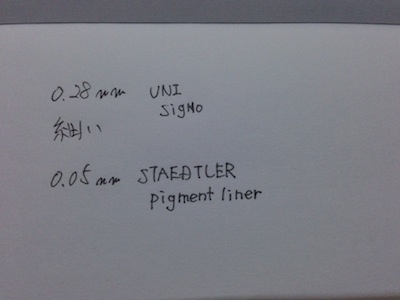 0.28mm UNI
SigNo
細い
0.05mm STAEDTLER
pigment liner